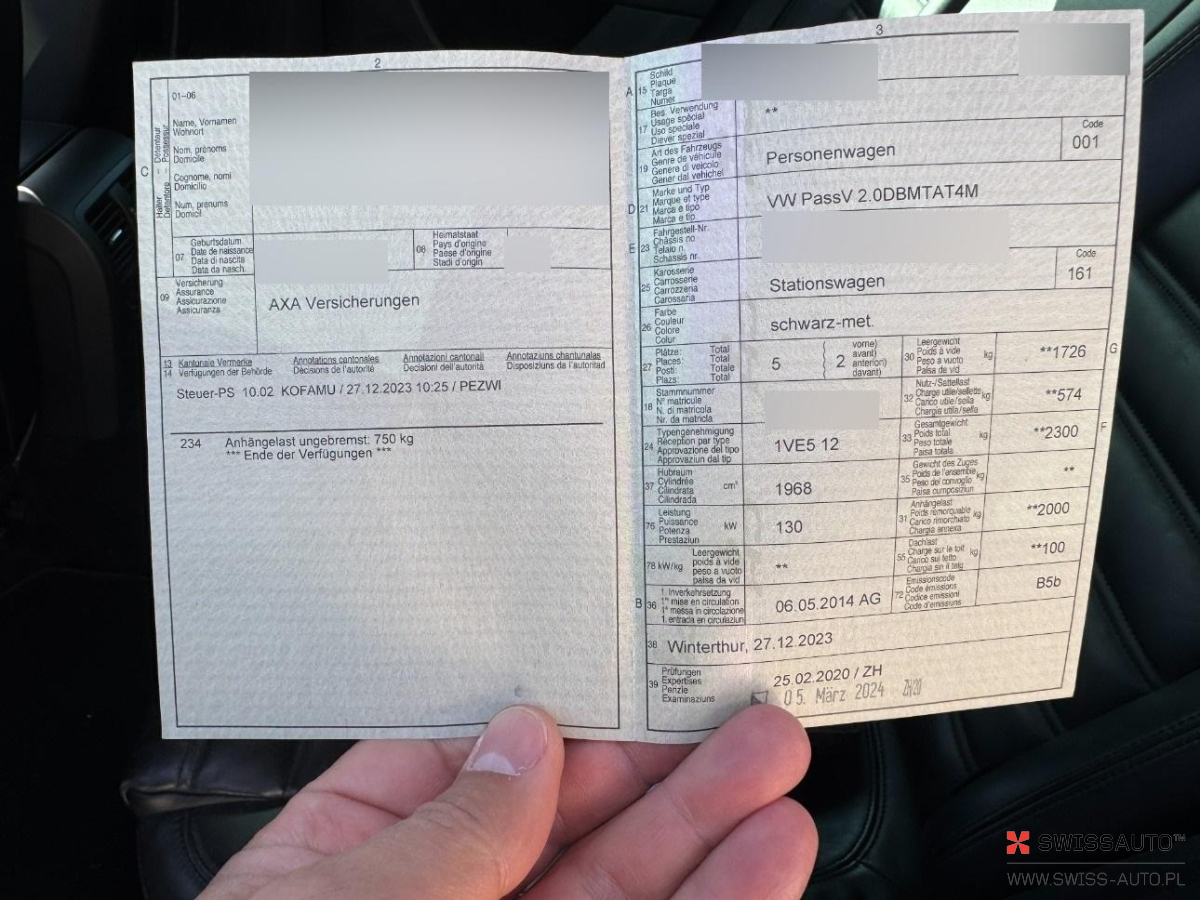 2
01-06
C
Halter Détenteur
Detentore Possessur
Name, Vornamen
Wohnort
Nom, prénoms
Domicile
Cognome, nomi
Domicilio
Num, prenums
Domicil
07
Geburtsdatum
Date de naissance
Data di nascita
Data da nasch.
08
Heimatstaat
Pays d'origine
Paese d'origine
Stadi d'origin
09
Versicherung
Assurance
Assicurazione
Assicuranza
AXA Versicherungen
13 Kantonale Vermerke Annotations cantonales Annotazioni cantonali Annotaziuns chantunalas
14 Verfügungen der Behörde Décisions de l'autorité Decisioni dell'autorità Disposiziuns da l'autoritad
Steuer-PS 10.02 KOFAMU / 27.12.2023 10:25 / PEZWI
234 Anhängelast ungebremst: 750 kg
*** Ende der Verfügungen ***
3
A 15
Schild
Plaque
Targa
Numer
17
Bes. Verwendung
Usage spécial
Uso speciale
Diever spezial
**
19
Art des Fahrzeugs
Genre de véhicule
Genere di veicolo
Gener dal vehichel
Personenwagen
Code
001
D 21
Marke und Typ
Marque et type
Marca e tipo
Marca e tip
VW PassV 2.0DBMTAT4M
E 23
Fahrgestell-Nr.
Châssis no
Telaio n.
Schassis nr.
25
Karosserie
Carrosserie
Carrozzeria
Carossaria
Stationswagen
Code
161
26
Farbe
Couleur
Colore
Colur
schwarz-met.
27
Plätze: Total
Places: Total
Posti: Totale
Plazs: Total
5
2
vorne)
avant)
anteriori)
davant)
30
Leergewicht
Poids à vide
Peso a vuoto
Paisa da vid
kg
**1726
G
18
Stammnummer
N° matricule
N. di matricola
Nr. da matricla
32
Nutz-/Sattellast
Charge utile/sellette
Carico utile/sella
Chargia utila/sella
kg
**574
24
Typengenehmigung
Réception par type
Approvazione del tipo
Approvaziun dal tip
1VE5 12
33
Gesamtgewicht
Poids total
Peso totale
Paisa totala
kg
**2300
F
37
Hubraum
Cylindrée
Cilindrata
Cilindrada
cm³
1968
35
Gewicht des Zuges
Poids de l'ensemble
Peso del convoglio
Paisa cumposiziun
kg
**
76
Leistung
Puissance
Potenza
Prestaziun
kW
130
31
Anhängelast
Poids remorquable
Carico rimorchiato
Chargia annexa
kg
**2000
78 kW/kg
Leergewicht
poids à vide
peso a vuoto
paisa da vid
**
55
Dachlast
Charge sur le toit
Carico sul tetto
Chargia sin il tetg
kg
**100
B 36
1. Inverkehrsetzung
1re mise en circulation
1a messa in circolazione
1. entrada en circulaziun
06.05.2014 AG
72
Emissionscode
Code émissions
Codice emissioni
Code d'emissiuns
B5b
38
Winterthur, 27.12.2023
39
Prüfungen
Expertises
Perizie
Examinaziuns
25.02.2020 / ZH
05. März 2024
SWISSAUTO™
WWW.SWISS-AUTO.PL